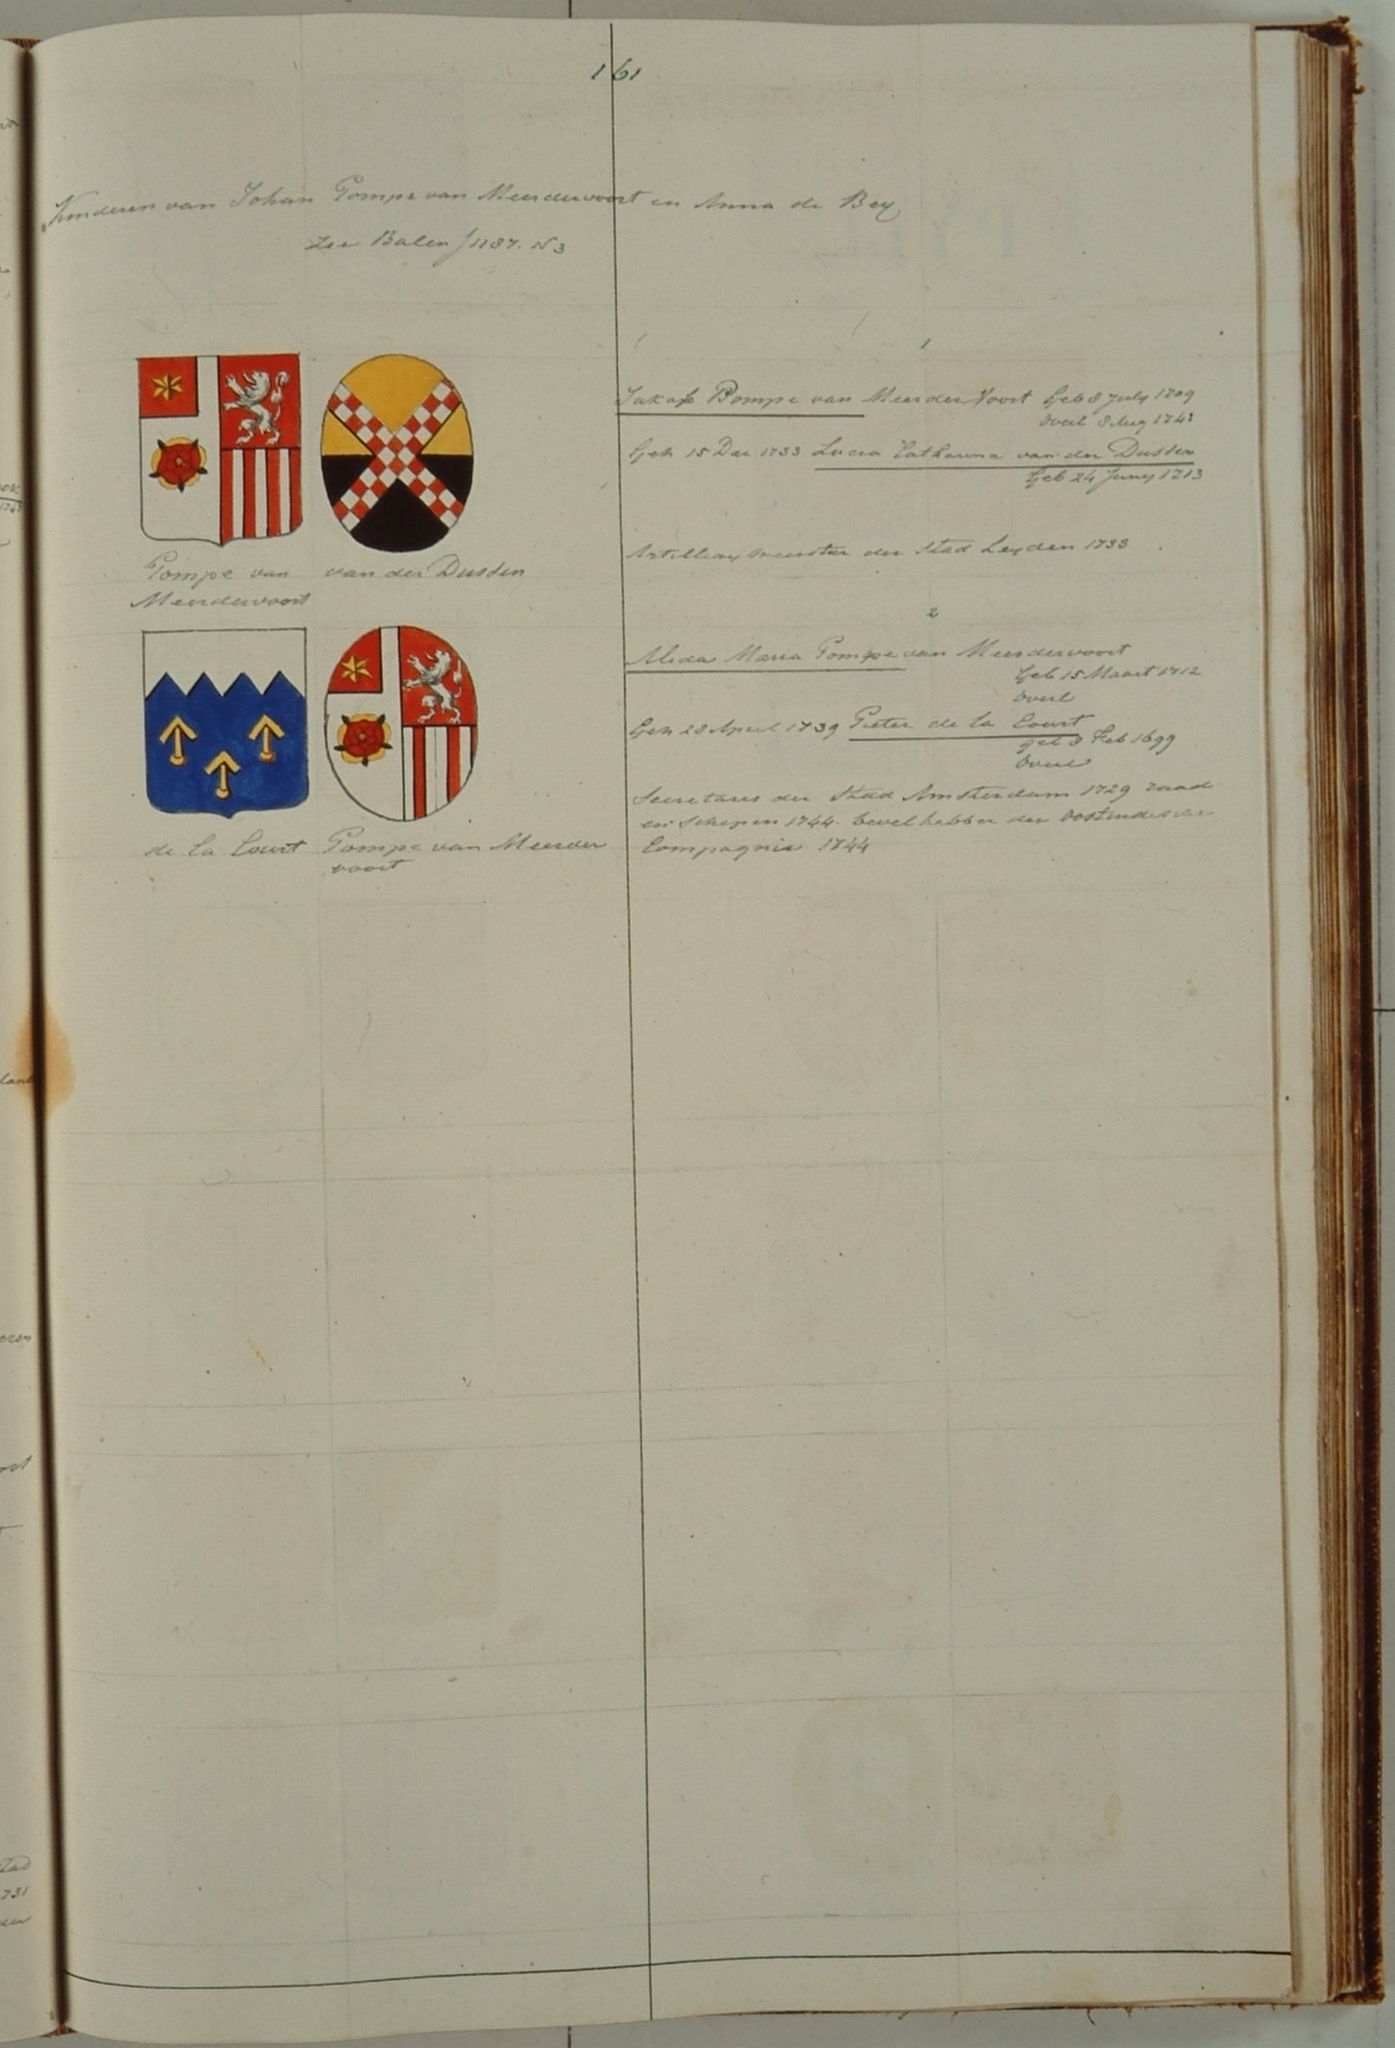 161
Kinderen van Johan Pompe van Meerdervoort en Anna de Bey
zie Balen f 1187. N 3
1
Jakob Pompe van Meerder Voort Geb 8 July 1709
Overl 8 Aug 1741
Geh 15 Dec 1733 Lucia Catharina van der Dussen
Geb 24 Juny 1713
Artillery meester der Stad Leyden 1733
Pompe van
Meerdervoort
van der Dussen
2
Alida Maria Pompe van Meerdervoort
Geb 15 Maart 1712
Overl
Geh 28 April 1739 Pieter de la Court
geb 8 Feb 1699
Overl
Secretaris der Stad Amsterdam 1729 raad
en Schepen 1744. bewelhebber der Oostindische
Compagnie 1744
de la Court
Pompe van Meerder
voort